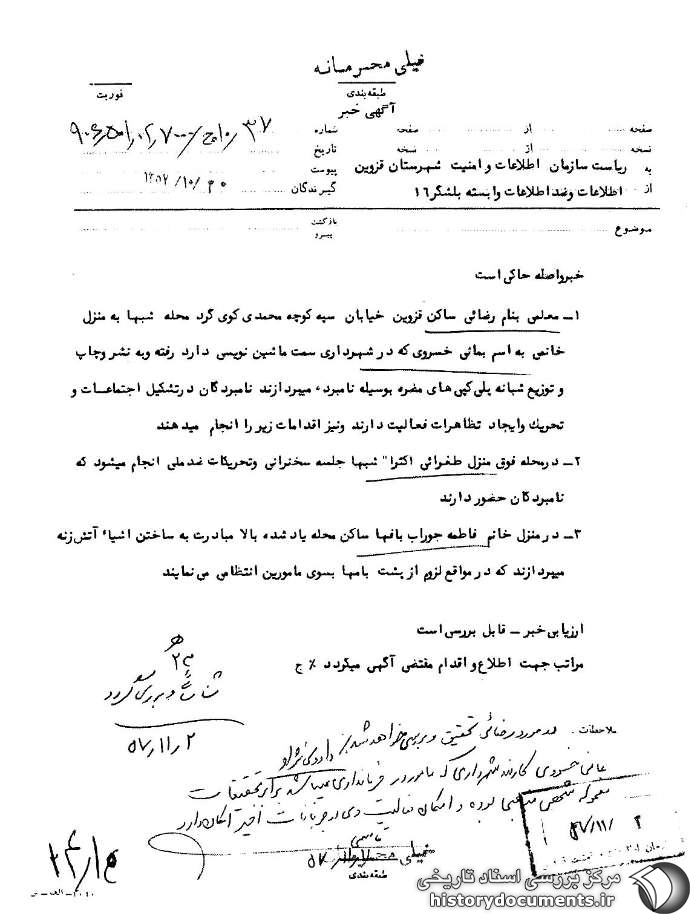 خیلی محرمانه
طبقه‌بندی
فوریت
آگهی خبر
صفحه از صفحه شماره
نسخه از نسخه تاریخ
به ریاست سازمان اطلاعات و امنیت شهرستان قزوین پیوست
از اطلاعات وضداطلاعات وابسته بلشگر۱۶ گیرندگان
بازگشت
پیرو
موضوع
خبرواصله حاکی است
۱ــ معلمی بنام رضائی ساکن قزوین خیابان سپه کوچه محمدی کوی گرد محله شبها به منزل
خانمی به اسم بمانی خسروی که در شهرداری سمت ماشین نویسی دارد رفته وبه نشر وچاپ
و توزیع شبانه پلی‌کپی‌های مضره بوسیله نامبرده میپردازند نامبردگان درتشکیل اجتماعات و
تحریك وایجاد تظاهرات فعالیت دارند ونیز اقدامات زیر را انجام میدهند
۲ــ درمحله فوق منزل طغرائی اکثرا" شبها جلسه سخنرانی وتحریکات ضدملی انجام میشود که
نامبردگان حضور دارند
۳ــ در منزل خانم فاطمه جوراب بافها ساکن محله یاد شده بالا مبادرت به ساختن اشیاء آتش‌زنه
میپردازند که در مواقع لزوم از پشت بامها بسوی مامورین انتظامی می‌نمایند
ارزیابی خبر ــ قابل بررسی است
مراتب جهت اطلاع و اقدام مقتضی آگهی میگردد ٪ ج
۵۷/۱۱/۲
ملاحظات . در مورد رضائی تحقیق و بررسی خواهد شد
خیلی محرمانه
طبقه‌بندی
۵۷/۱۱/۲
مرکز بررسی اسناد تاریخی
historydocuments.ir